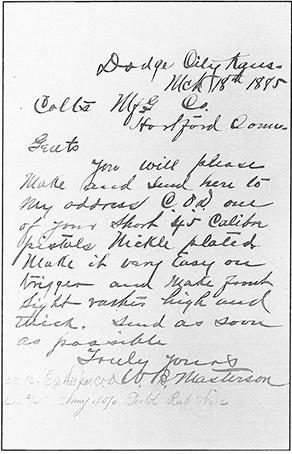 Dodge City Kans-
Mch 18th 1885
Colts Mfg Co.
Hartford Conn-
Gents
You will please
Make and send here to
My address C O D one
of your Short 45 Calibre
pistols Nickle plated
Make it very Easy on
trigger and Make front
Sight rather high and
thick. Send as soon
as possible
Truly Yours
W B Masterson